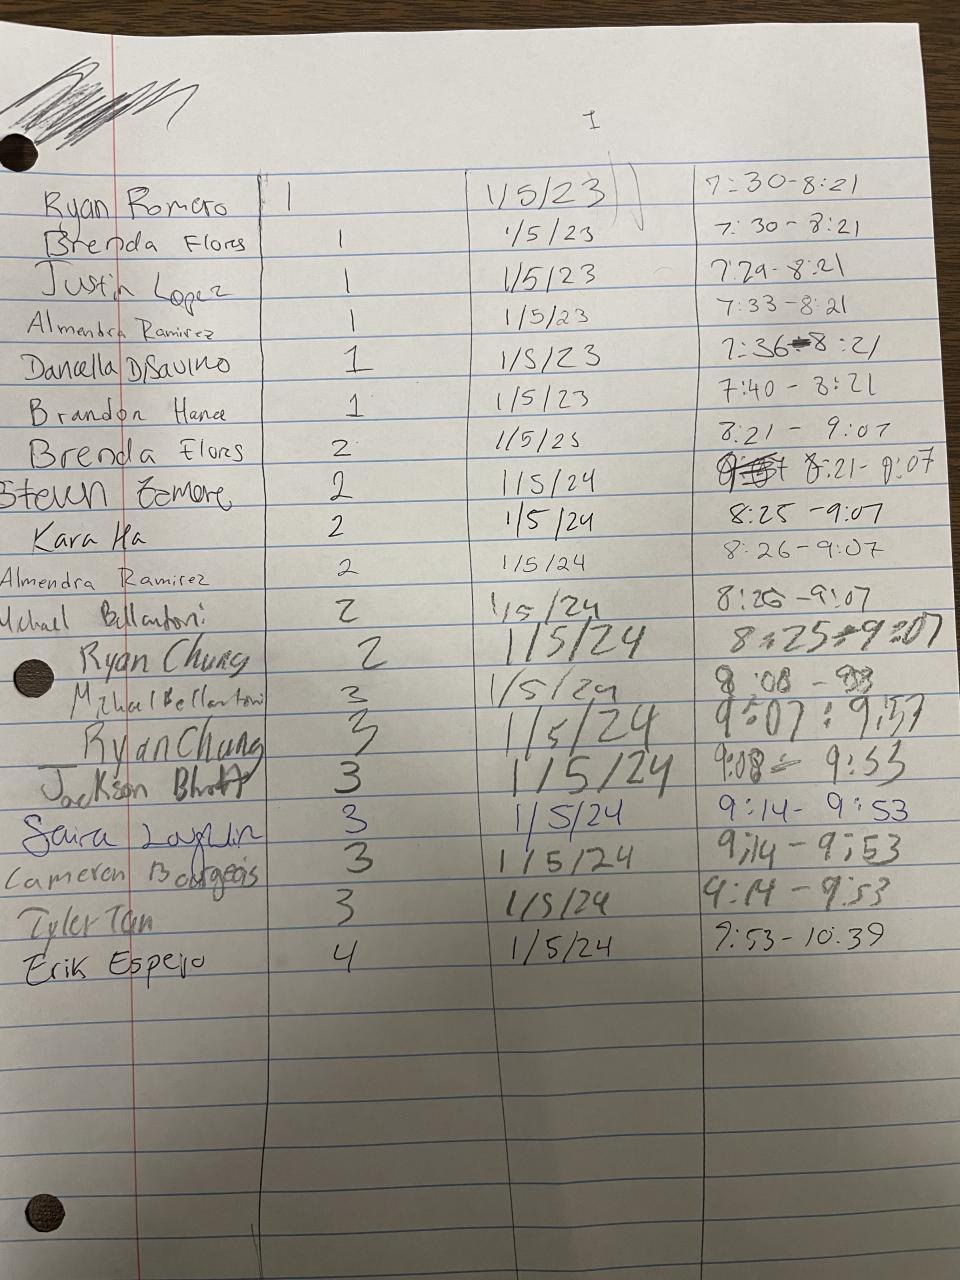 I
Ryan Romero 1 1/5/23 7:30-8:21
Brenda Flors 1 1/5/23 7:30-8:21
Justin Lopez 1 1/5/23 7:29-8:21
Almendra Ramirez 1 1/5/23 7:33-8:21
Danella DiSavino 1 1/5/23 7:36-8:21
Brandon 1 1/5/23 7:40-8:21
Brenda Flors 2 1/5/23 8:21-9:07
Steven 2 1/5/24 8:21-9:07
Kara Ha 2 1/5/24 8:25-9:07
Almendra Ramirez 2 1/5/24 8:26-9:07
Michael Bellantoni 2 1/5/24 8:26-9:07
Ryan Chung 2 1/5/24 8:25-9:07
Michael Bellantoni 3 1/5/24
Ryan Chung 3 1/5/24 9:07:9:57
Jackson 3 1/5/24 9:08-9:53
Saira 3 1/5/24 9:14-9:53
Cameron Bourgeois 3 1/5/24 9:14-9:53
Tyler Tan 3 1/5/24 9:14-9:53
Erik Espejo 4 1/5/24 9:53-10:39